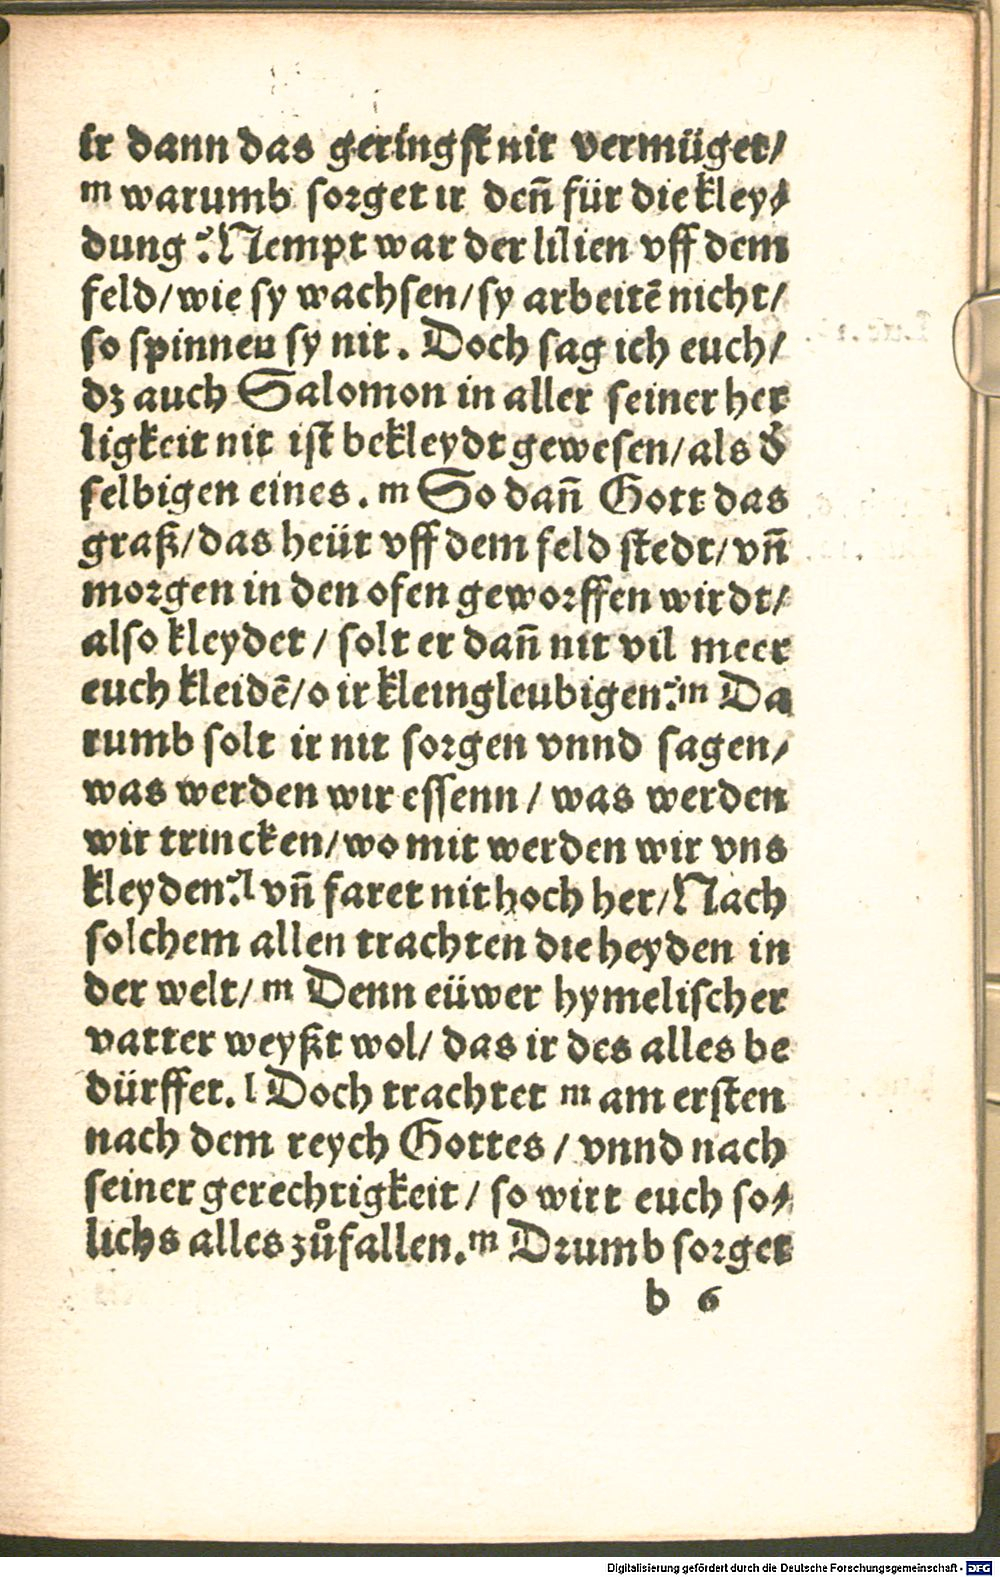 ir dann das geringſt nit vermüget/
m warumb ſorget ir deñ für die kley⸗
dung? Nempt war der lilien vff dem
feld/wie ſy wachſen/ſy arbeitē nicht/
ſo ſpinnen ſy nit. Doch ſag ich euch/
dz auch Salomon in aller ſeiner her
ligkeit nit iſt bekleydt geweſen/als d̓
ſelbigen eines. m So dañ Gott das
graß/das heüt vff dem feld ſtedt/vñ
morgen in den ofen geworffen wirdt/
alſo kleydet/ ſolt er dañ nit vil meer
euch kleidē/o ir kleingleubigen? m Da
rumb ſolt ir nit ſorgen vnnd ſagen/
was werden wir eſſenn/ was werden
wir trincken/wo mit werden wir vns
kleyden? l vñ faret nit hoch her/Nach
ſolchem allen trachten die heyden in
der welt/ m Denn eüwer hymeliſcher
vatter weyßt wol/ das ir des alles be
dürffet. l Doch trachtet m am erſten
nach dem reych Gottes/ vnnd nach
ſeiner gerechtigkeit/ ſo wirt euch ſo⸗
lichs alles zůfallen. m Drumb ſorget
b 6
Digitalisierung gefördert durch die Deutsche Forschungsgemeinschaft - DFG